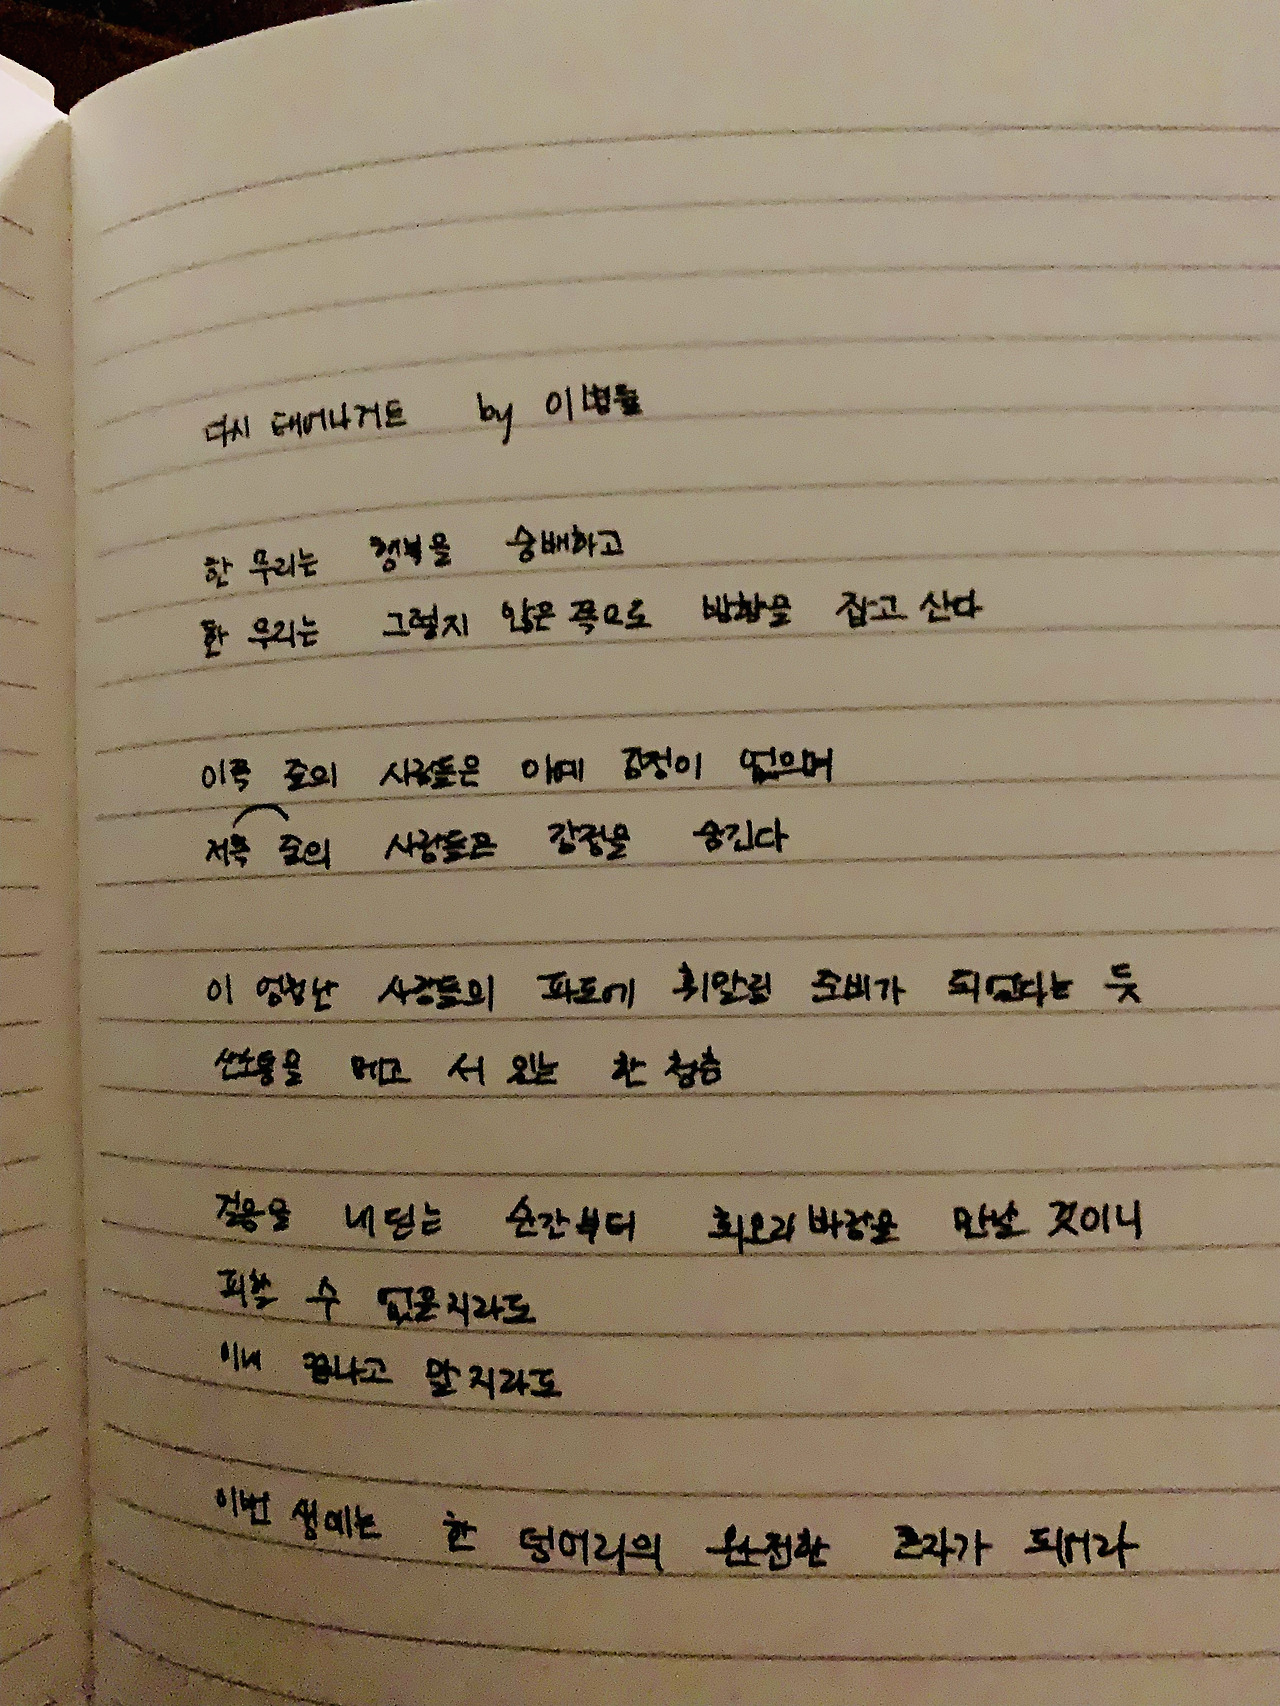 다시 태어나거든 by 이병률
한 무리는 행복을 숭배하고
한 무리는 그렇지 않은 쪽으로 방향을 잡고 산다
이쪽 줄의 사람들은 아예 감정이 없으며
저쪽 줄의 사람들은 감정을 숨긴다
이 엄청난 사람들의 파도에 휘말릴 준비가 되었다는 듯
산소통을 메고 서 있는 한 청춘
걸음을 내딛는 순간부터 회오리바람을 만날 것이니
피할 수 없을지라도
이내 끝나고 말지라도
이번 생에는 한 덩어리의 완전한 혼자가 되어라